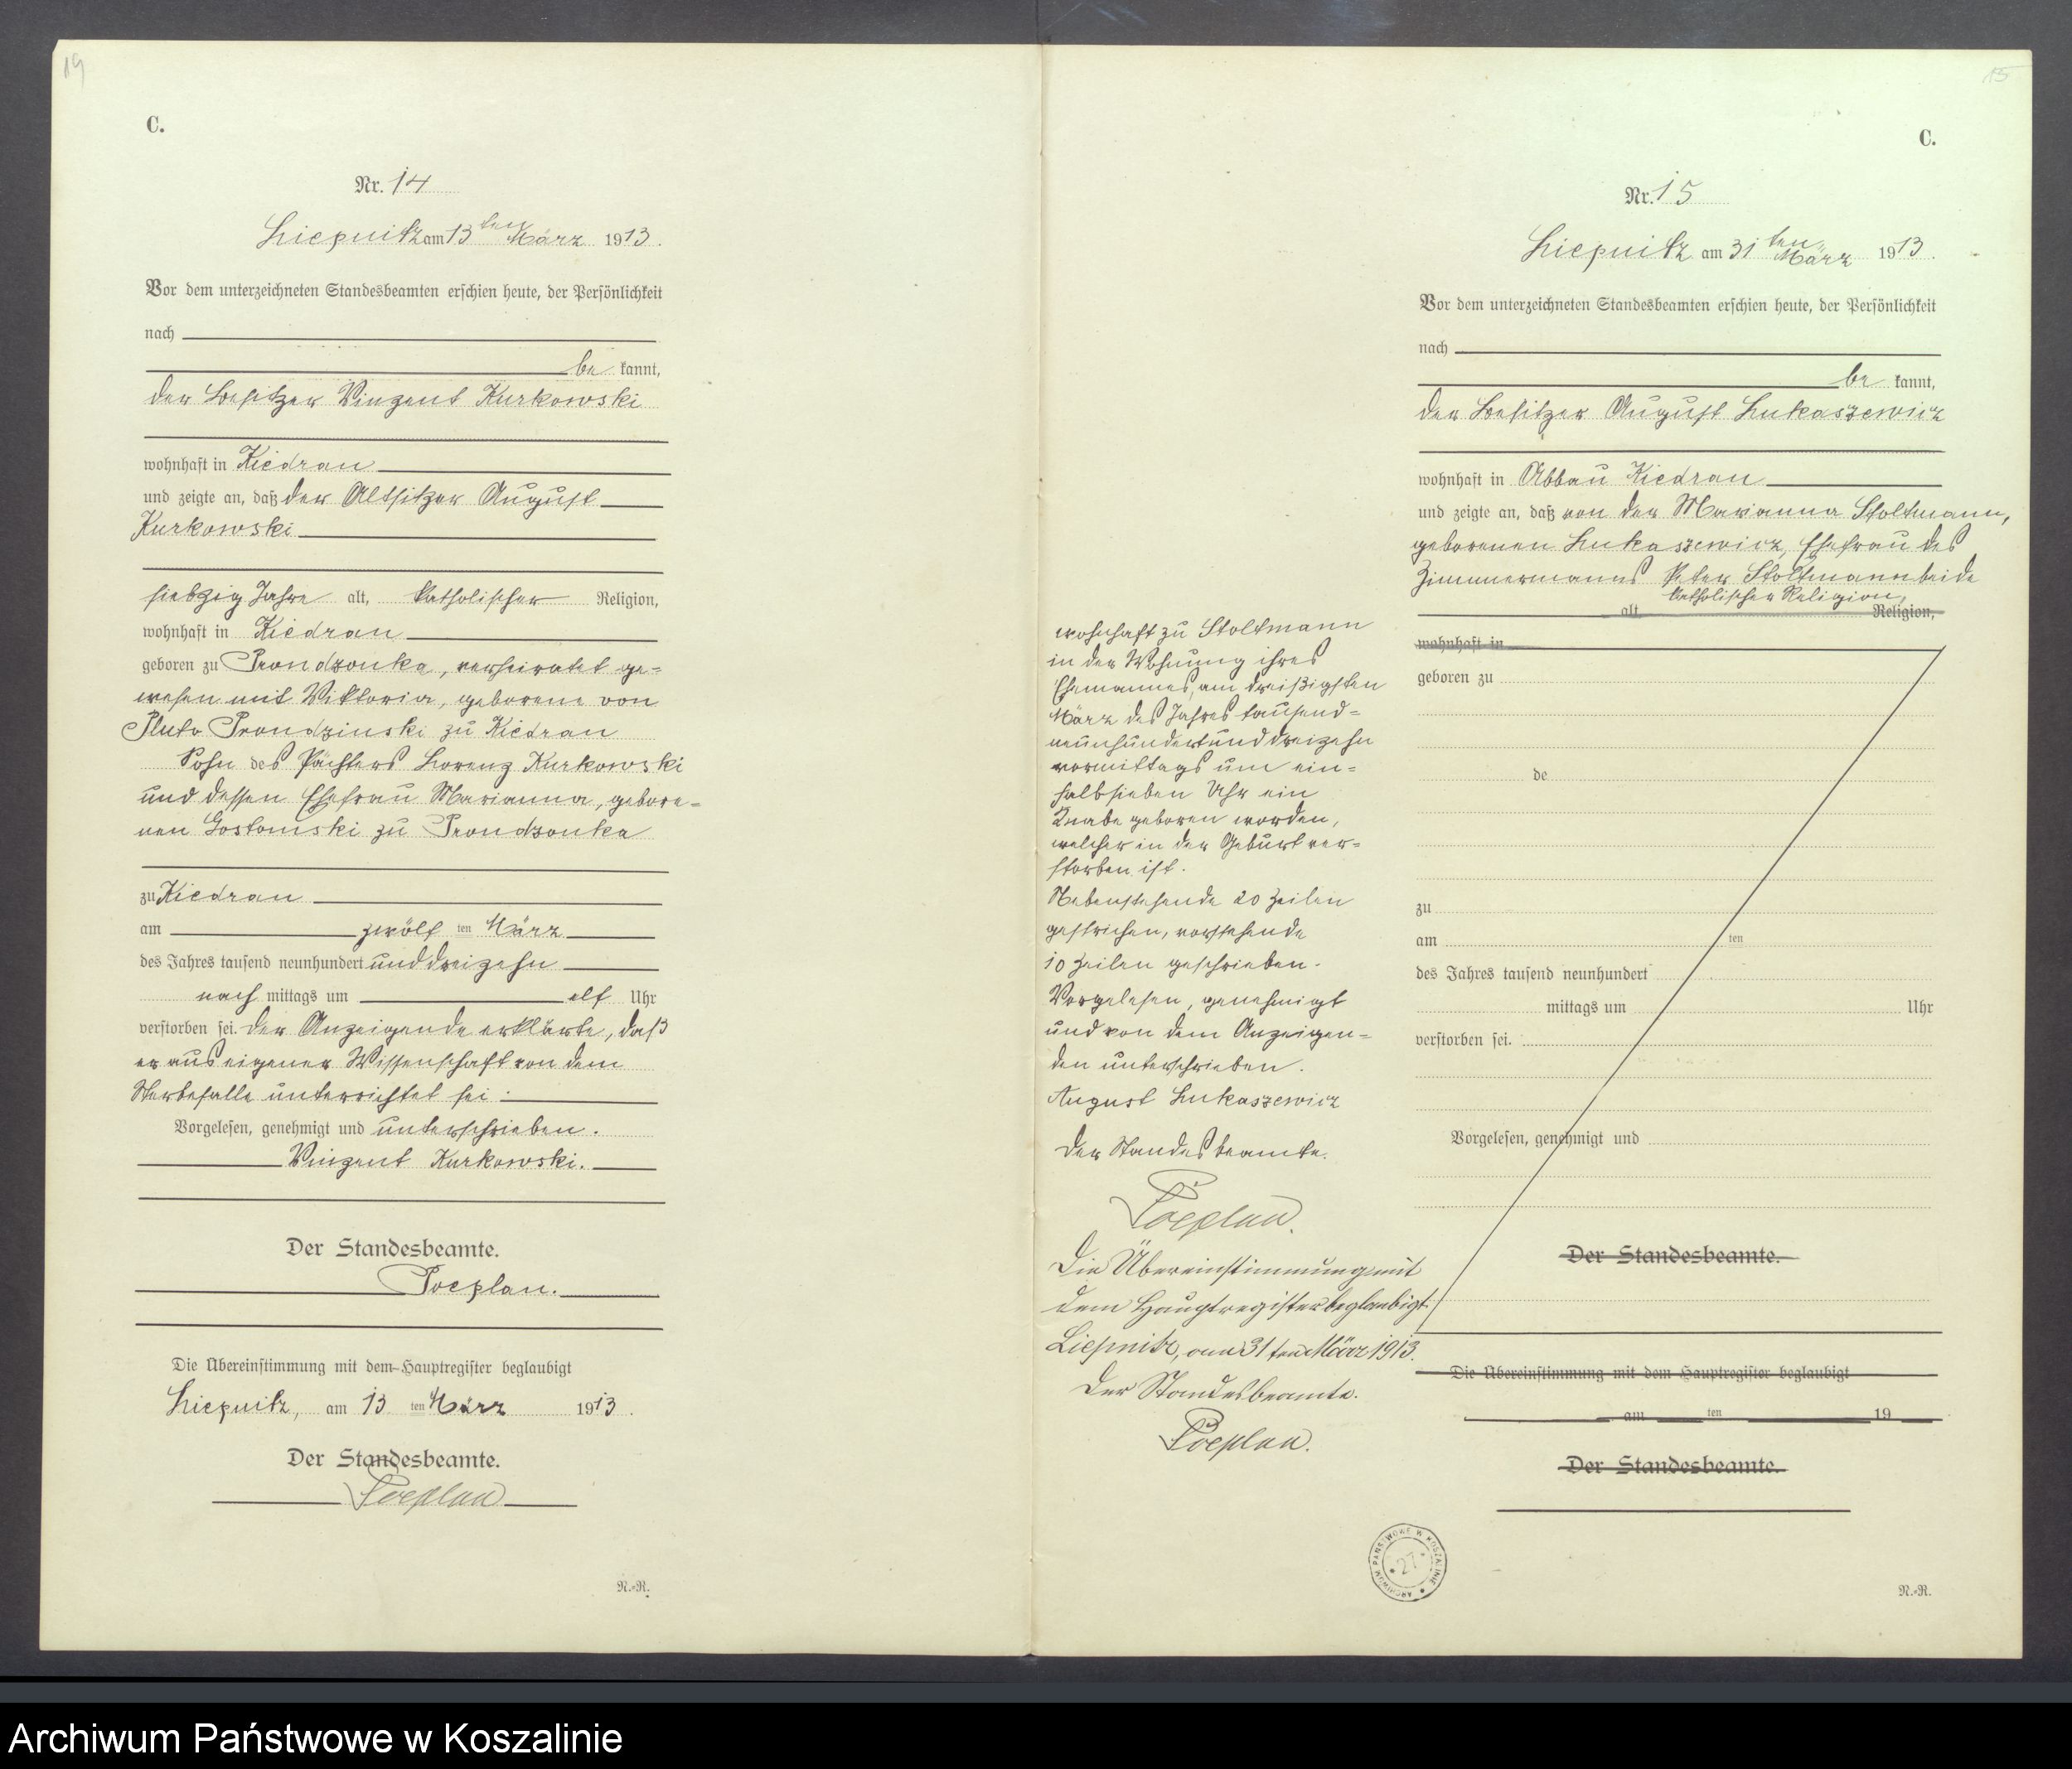 19
C.
Nr. 14
Liepnitz am 13ten März 1913.
Vor dem unterzeichneten Standesbeamten erschien heute, der Persönlichkeit
nach
be kannt,
der Besitzer Vinzent Kurkowski
wohnhaft in Kiedrau
und zeigte an, daß der Altsitzer August
Kurkowski
siebzig Jahre alt, katholischer Religion,
wohnhaft in Kiedrau
geboren zu Prondzonka, verheiratet ge=
wesen mit Viktoria, geborene von
Pluto Prondzinski zu Kiedrau
Sohn des Pächters Lorenz Kurkowski
und dessen Ehefrau Marianna, gebore=
nen Gostomski zu Prondzonka
zu Kiedrau
am zwölf ten März
des Jahres tausend neunhundert und dreizehn
nach mittags um elf Uhr
verstorben sei. Der Anzeigende erklärte, daß
er aus eigener Wissenschaft von dem
Sterbefalle unterrichtet sei.
Vorgelesen, genehmigt und unterschrieben.
Vinzent Kurkowski.
Der Standesbeamte.
Poeplau.
Die Übereinstimmung mit dem Hauptregister beglaubigt
Liepnitz, am 13 ten März 1913.
Der Standesbeamte.
Poeplau
N.=R.
15
C.
Nr. 15
Liepnitz am 31ten März 1913.
Vor dem unterzeichneten Standesbeamten erschien heute, der Persönlichkeit
nach
be kannt,
der Besitzer August Lukaszewicz
wohnhaft in Abbau Kiedrau
und zeigte an, daß von der Marianna Stoltmann,
geborenen Lukaszewicz, Ehefrau des
Zimmermanns Peter Stoltmann beide
katholischer Religion,
alt, Religion,
wohnhaft in
geboren zu
de
zu
am ten
des Jahres tausend neunhundert
mittags um Uhr
verstorben sei.
Vorgelesen, genehmigt und
Der Standesbeamte.
Die Übereinstimmung mit dem Hauptregister beglaubigt
am ten 19
Der Standesbeamte.
N.=R.
wohnhaft zu Stoltmann
in der Wohnung ihres
Ehemannes, am dreißigsten
März des Jahres tausend=
neunhundert und dreizehn
vormittags um ein=
halb sieben Uhr ein
Knabe geboren worden,
welcher in der Geburt ver=
storben ist.
Nebenstehende 20 Zeilen
gestrichen, vorstehende
10 Zeilen geschrieben.
Vorgelesen, genehmigt
und von dem Anzeigen=
den unterschrieben.
August Lukaszewicz
Der Standesbeamte.
Poeplau.
Die Übereinstimmung mit
dem Hauptregister beglaubigt.
Liepnitz, am 31 ten März 1913.
Der Standesbeamte.
Poeplau.
ARCHIWUM PAŃSTWOWE W KOSZALINIE
27
Archiwum Państwowe w Koszalinie